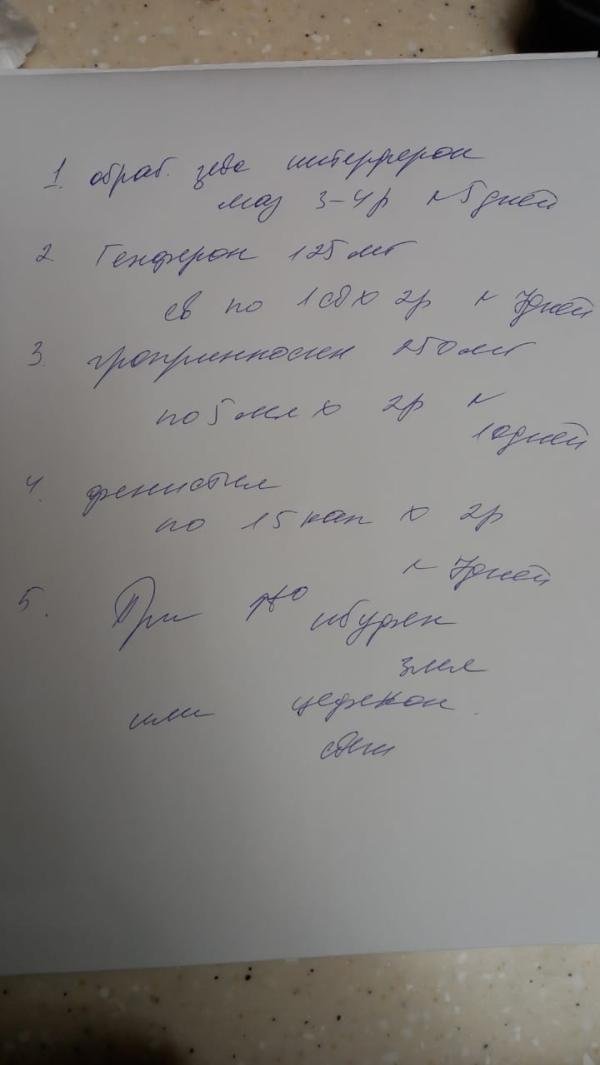 1. обраб. зева интерферон
маз 3-4р ~ 5 дней
2. Генферон 125 мг
св по 1 св х 2р ~ 7 дней
3. гроприносин 250 мг
по 5 мл х 2р ~
10 дней
4. фенистил
по 15 кап х 2р
~ 7 дней
5. При обуфен
или цефекон
свеч